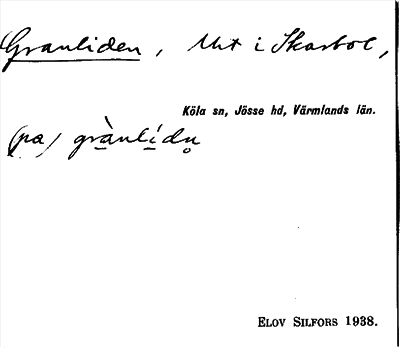 Granliden, Utt i Skarbol,
Köla sn, Jösse hd, Värmlands län.
(på) grànlídn̥
ELOV SILFORS 1938.